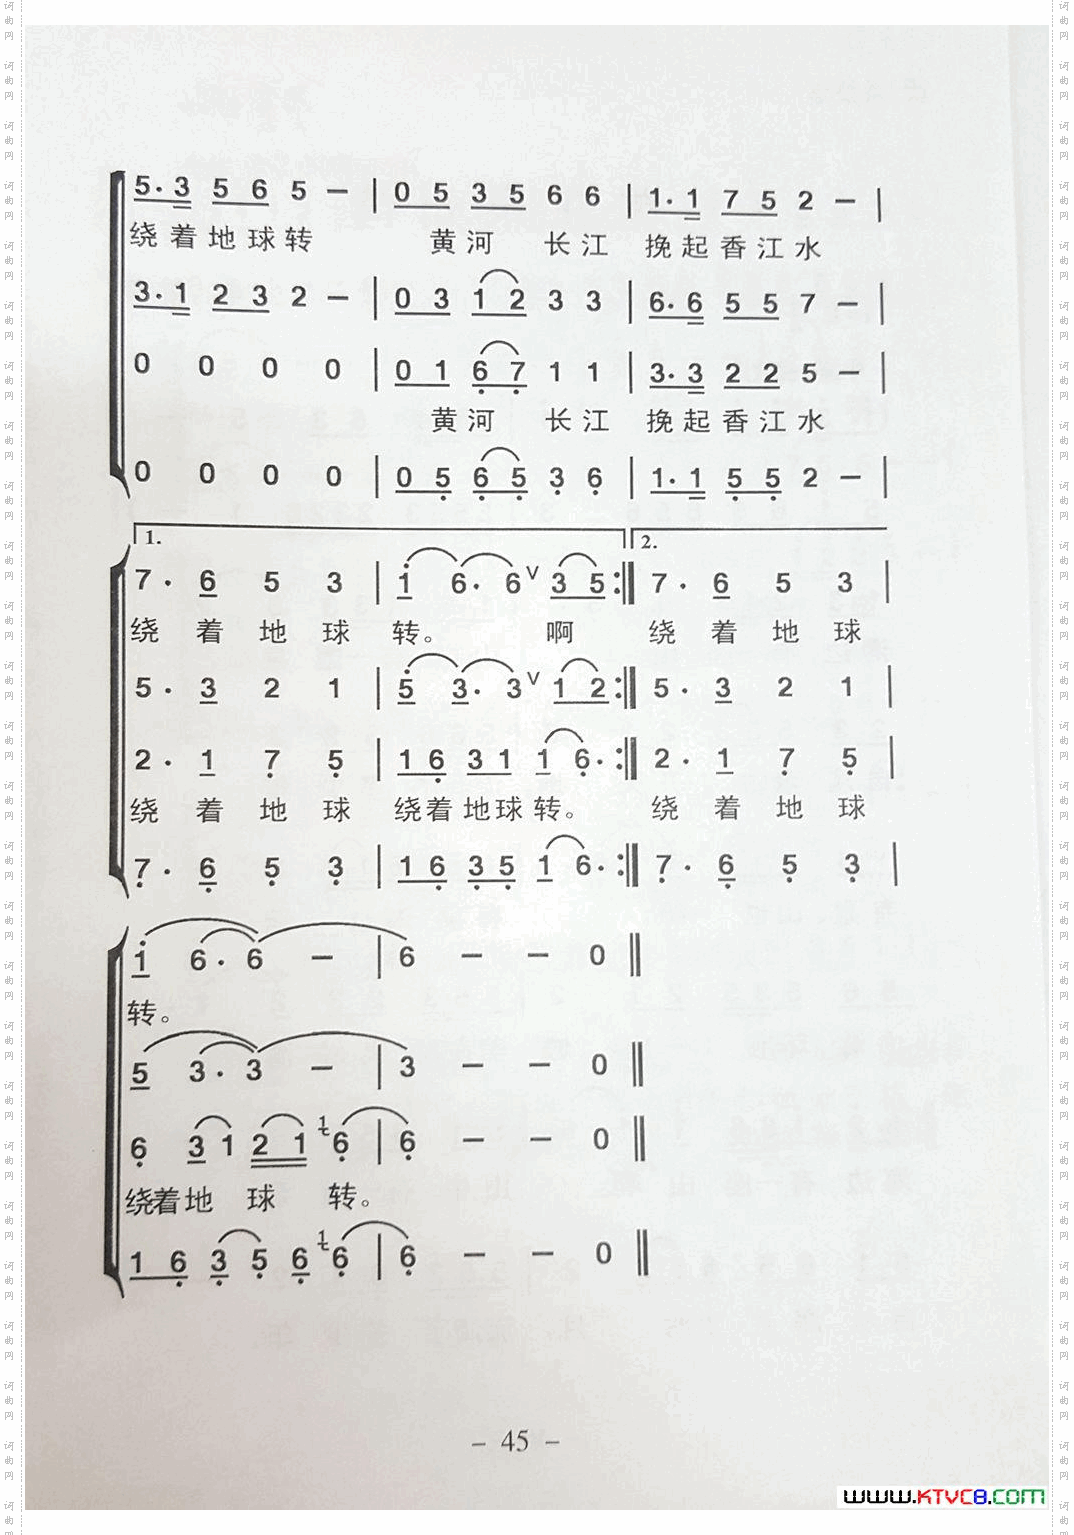 5·3 5 6 5 – | 0 5 3 5 6 6 | 1·1 7 5 2 – |
绕着地球转 黄河 长江 挽起香江水
3·1 2 3 2 – | 0 3 1 2 3 3 | 6·6 5 5 7 – |
0 0 0 0 | 0 1 6 7 1 1 | 3·3 2 2 5 – |
黄河 长江 挽起香江水
0 0 0 0 | 0 5 6 5 3 6 | 1·1 5 5 2 – |
1. 2.
7· 6 5 3 | 1 6· 6 V 3 5 :‖ 7· 6 5 3 |
绕 着 地 球 转。 啊 绕 着 地 球
5· 3 2 1 | 5 3· 3 V 1 2 :‖ 5· 3 2 1 |
2· 1 7 5 | 1 6 3 1 1 6· :‖ 2· 1 7 5 |
绕 着 地 球 绕着 地球 转。 绕 着 地 球
7· 6 5 3 | 1 6 3 5 1 6· :‖ 7· 6 5 3 |
1 6· 6 – | 6 – – 0 ‖
转。
5 3· 3 – | 3 – – 0 ‖
6 3 1 2 1 1 6 | 6 – – 0 ‖
绕着地 球 转。
1 6 3 5 6 1 6 | 6 – – 0 ‖
– 45 –
www.KTVC8.COM